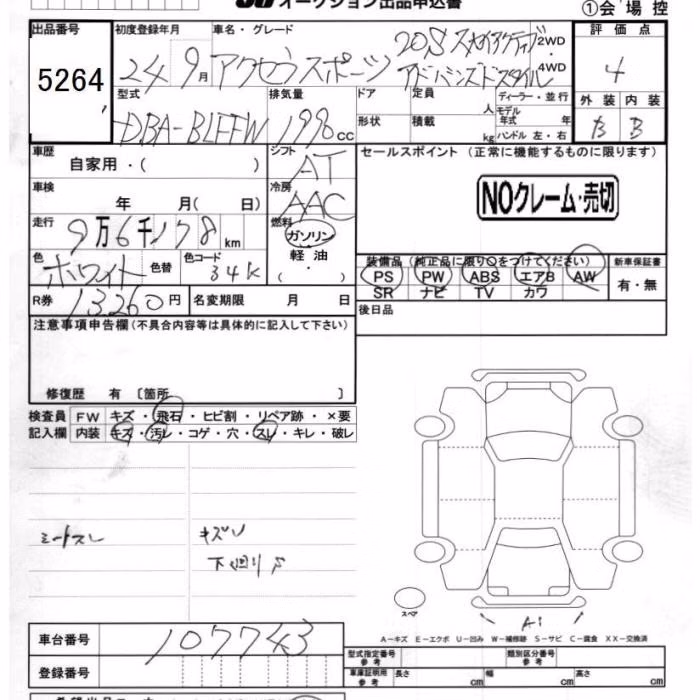 オークション出品申込書
①会場控
出品番号 5264
初度登録年月 24年 9月
車名・グレード アクセラスポーツ 20S スカイアクティブ アドバンスドスタイル
2WD・4WD
評価点 4
型式 DBA-BLFFW
排気量 1998 CC
ドア 形状
定員 人
積載 kg
ディーラー・並行
モデル年式 年
ハンドル 左・右
外装 B
内装 B
車歴 自家用・( )
シフト AT
セールスポイント(正常に機能するものに限ります)
車検 年 月( 日)
冷房 AAC
NOクレーム・売切
走行 9万6千178km
燃料 ガソリン・軽油・( )
色 ホワイト 色替
色コード 34K
装備品(純正品に限り○をつけてください)
PS PW ABS エアB AW
SR ナビ TV カワ
新車保証書 有・無
R券 13,260円
名変期限 月 日
後日品
注意事項申告欄(不具合内容等は具体的に記入して下さい)
修復歴 有〔箇所 〕
検査員 FW キズ・飛石・ヒビ割・リペア跡・×要
記入欄 内装 キズ・汚レ・コゲ・穴・スレ・キレ・破レ
シートスレ
キズU
下廻りS
スペア
A1
A-キズ E-エクボ U-凹み W-補修跡 S-サビ C-腐食 XX-交換済
車台番号 107743
型式指定番号 参考
類別区分番号 参考
登録番号
車庫証明用 参考 長さ cm 幅 cm 高さ cm